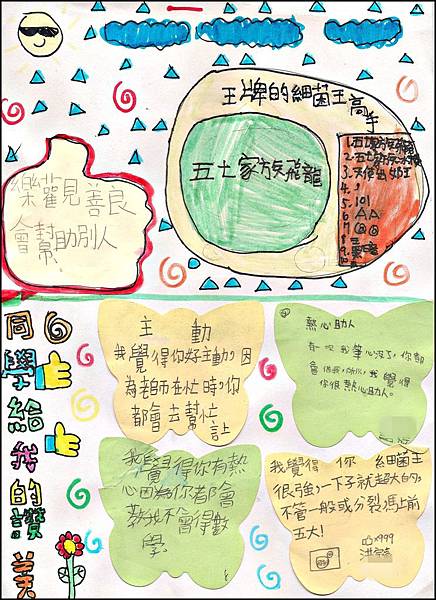 王牌的細菌王高手
五土家族飛龍
3.天使出如王
4.
5.101
6.AA
樂觀善良
會幫助別人
同學給我的讚美
主動
我覺得你好主動,因
為老師在忙時,你
都會去幫忙
熱心助人
有一次我筆心沒了,你都
會借我,所以,我覺得
你很熱心助人。
我覺得你有熱
心因為你都會
教我不會得數
學。
我覺得 你 細菌王
很強,一下子就超大的。
不管一般或分裂馬上前
五大!